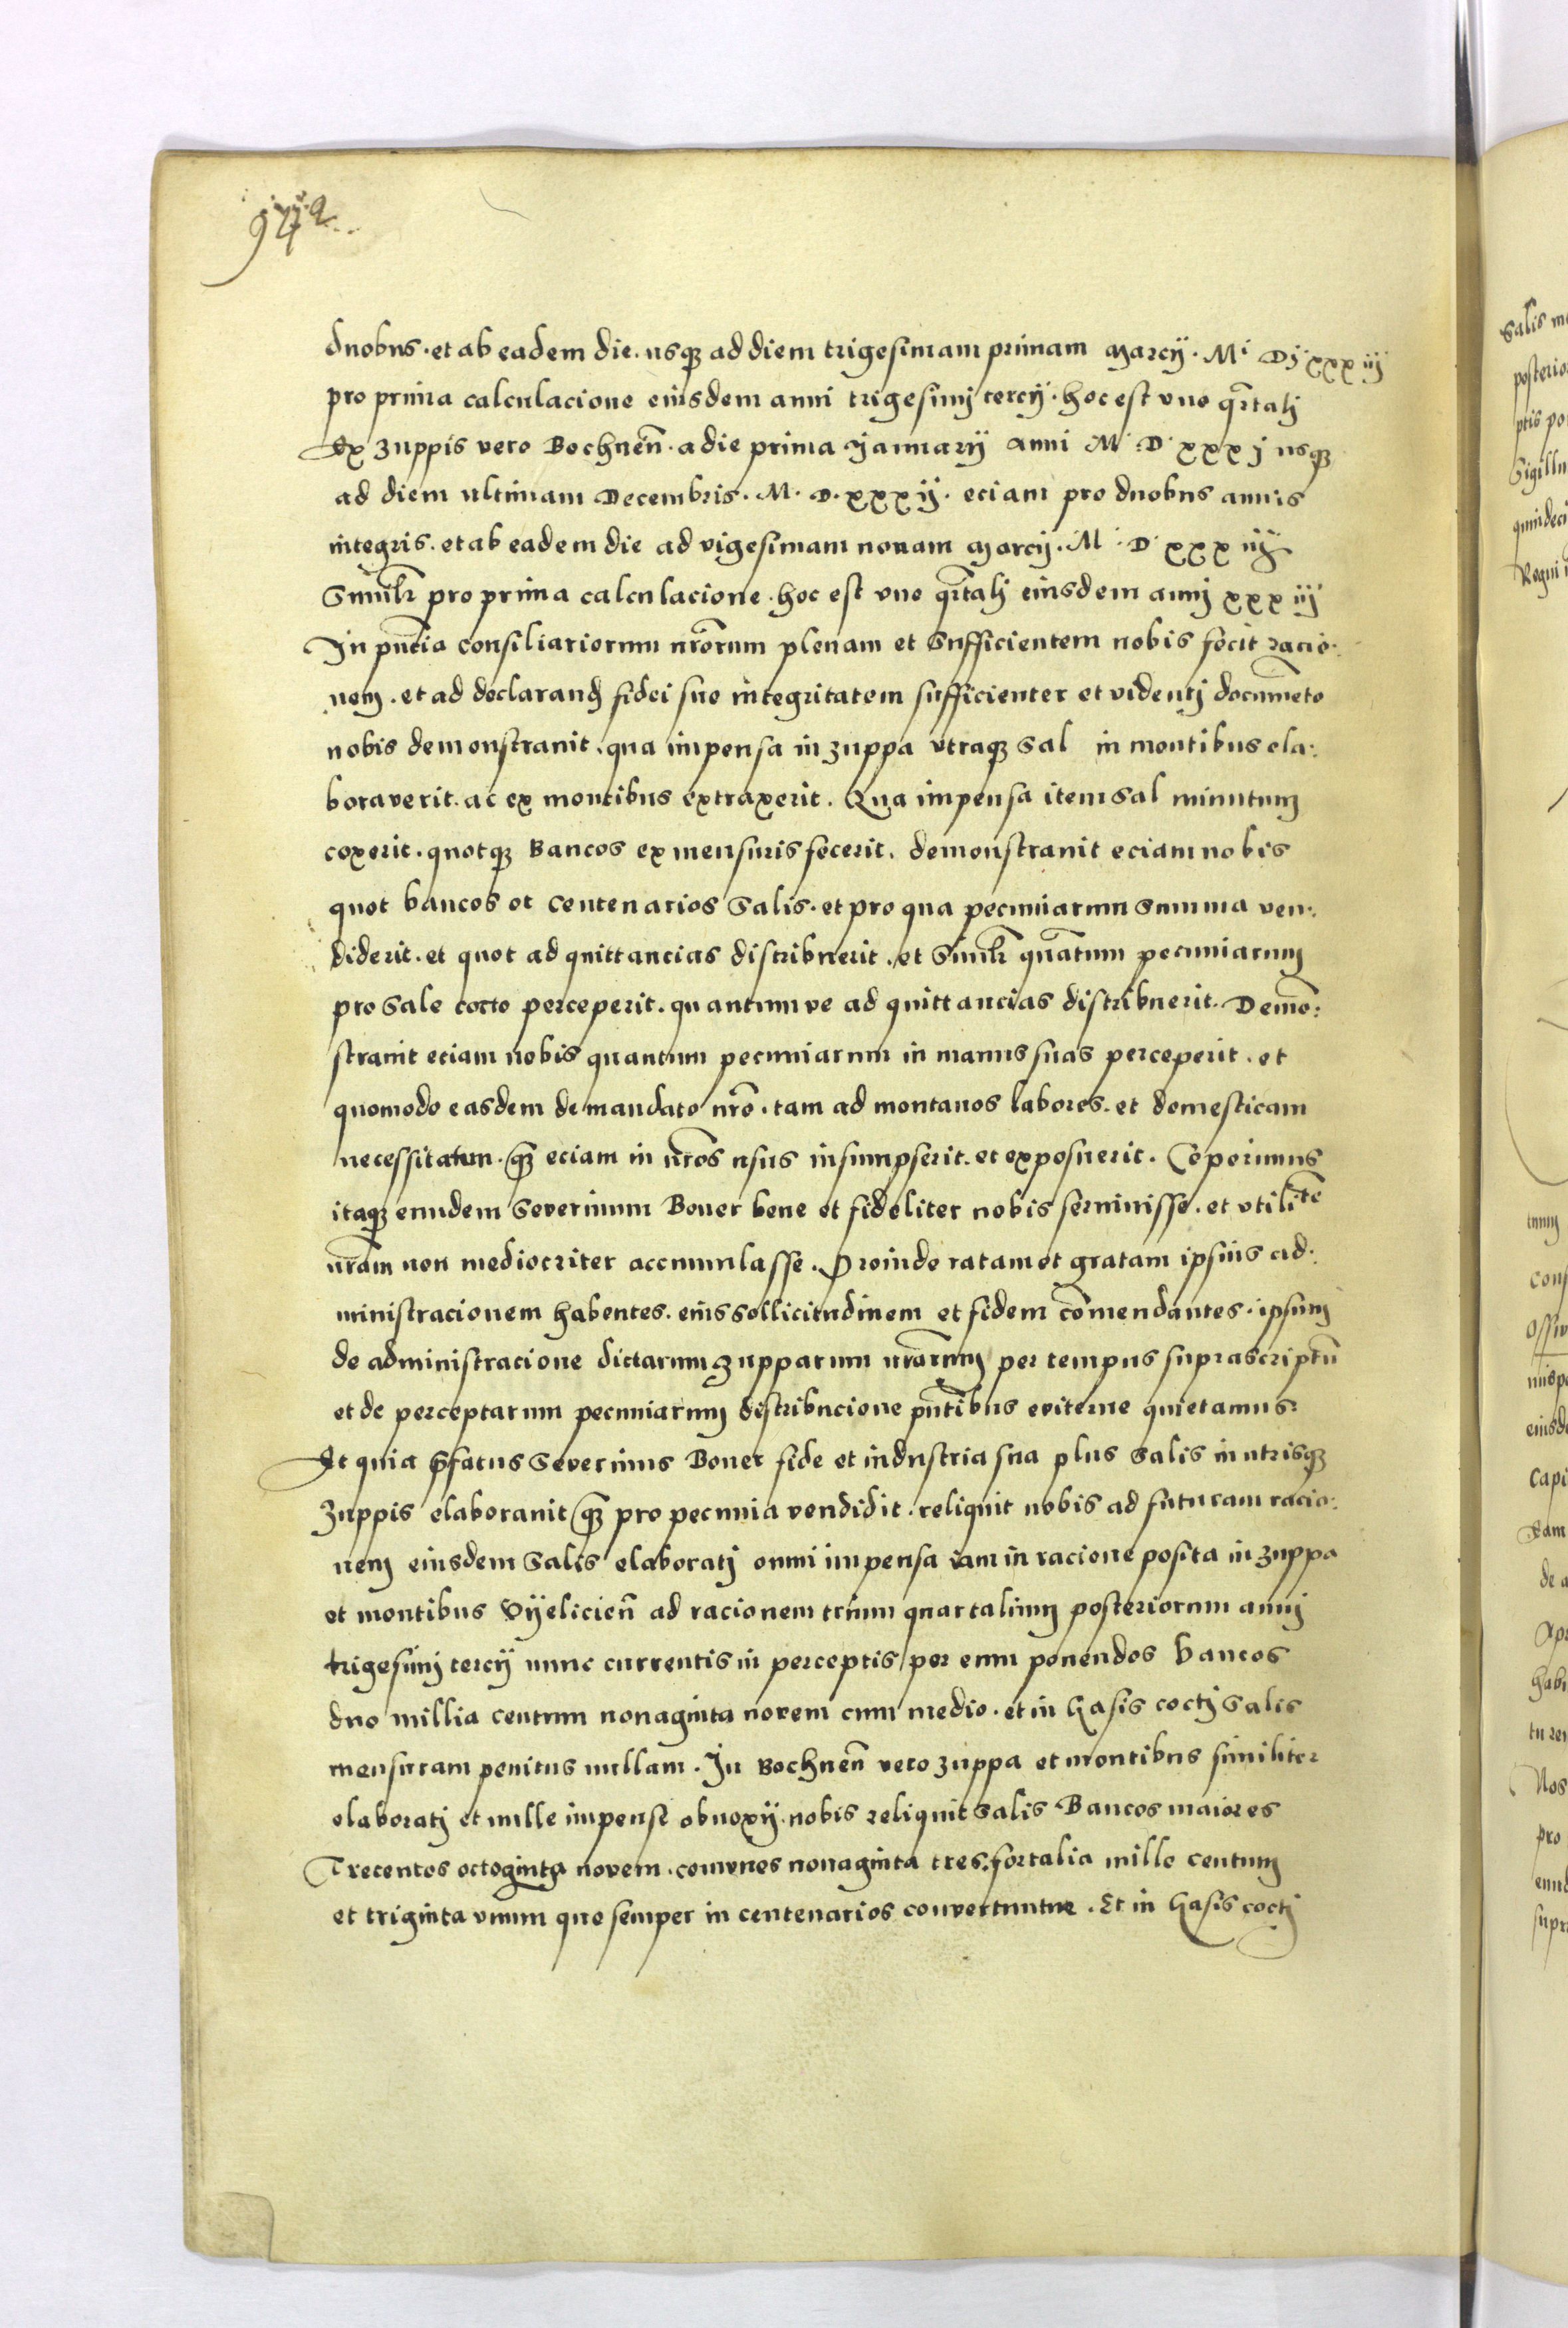 duobus. et ab eadem die. usq₃ ad diem trigesimam primam Marcÿ. M. D. xxxiij
pro prima calculacione eiusdem anni trigesimj tercÿ. hoc est vno qr̄talj
Ex zuppis vero Bochnen̄. a die prima Januarÿ anni M. D. xxxj usq₃
ad diem ultimam Decembris. M. D. xxxij. eciam pro duobus annis
integris. et ab eadem die ad vigesimam nonam Marcÿ. M. D. xxxiij
Simil̄r pro prima calculacione. hoc est vno qr̄talj eiusdem annj xxxiij
In pn̄tia consiliariorum nr̄orum plenam et sufficientem nobis fecit racio:
nem. et ad declarand̄ fidei sue integritatem sufficienter et videntj documēto
nobis demonstrauit. qua impensa in zuppa vtraq₃ sal in montibus ela:
boraverit. ac ex montibus extraxerit. Qua impensa item sal minutum
coxerit. quotq₃ Bancos ex mensuris fecerit. demonstrauit eciam nobis
quot bancos et centenarios Salis. et pro qua pecuniarum summa ven:
diderit. et quot ad quittancias distribuerit. et Simil̄r quātum pecuniarum
pro Sale cocto perceperit. quantumve ad quittancias distribuerit. Demō:
strauit eciam nobis quantum pecuniarum in manus suas perceperit. et
quomodo easdem de mandato nr̄o. tam ad montanos labores. et domesticam
necessitatem. q̄₃ eciam in nr̄os usus insumpserit. et exposuerit. Cōperimus
itaq₃ eundem Severinum Boner bene et fideliter nobis seruiuisse. et vtilitē
nr̄am non mediocriter accumulasse. Proinde ratam et gratam ipsius ad:
ministracionem habentes. eius sollicitudinem et fidem cōmendantes. ipsum
de administracione dictarum zupparum nr̄arum per tempus suprascriptū
et de perceptarum pecuniarum distribucione pn̄tibus eviterne quietamus.
Et quia p̄fatus Severinus Boner fide et industria sua plus Salis in utrisq₃
zuppis elaborauit q̄₃ pro pecunia vendidit. reliquit nobis ad futuram racio:
nem eiusdem Salis elaboratj omni impensa iam in racione posita in zuppa
et montibus Vÿelicien̄ ad racionem trium quartalium posteriorum annj
trigesimj tercÿ nunc currentis in perceptis per eum ponendos bancos
duo millia centum nonaginta novem cum medio. et in Casis coctj Salis
mensuram penitus nullam. In Bochnen̄ vero zuppa et montibus similiter
elaboratj et nulle impense obnoxÿ. nobis reliquit Salis Bancos maiores
Trecentos octoginta novem. comunes nonaginta tres. fortalia mille centum
et triginta vnum que semper in centenarios convertuntur. Et in Casis coctj